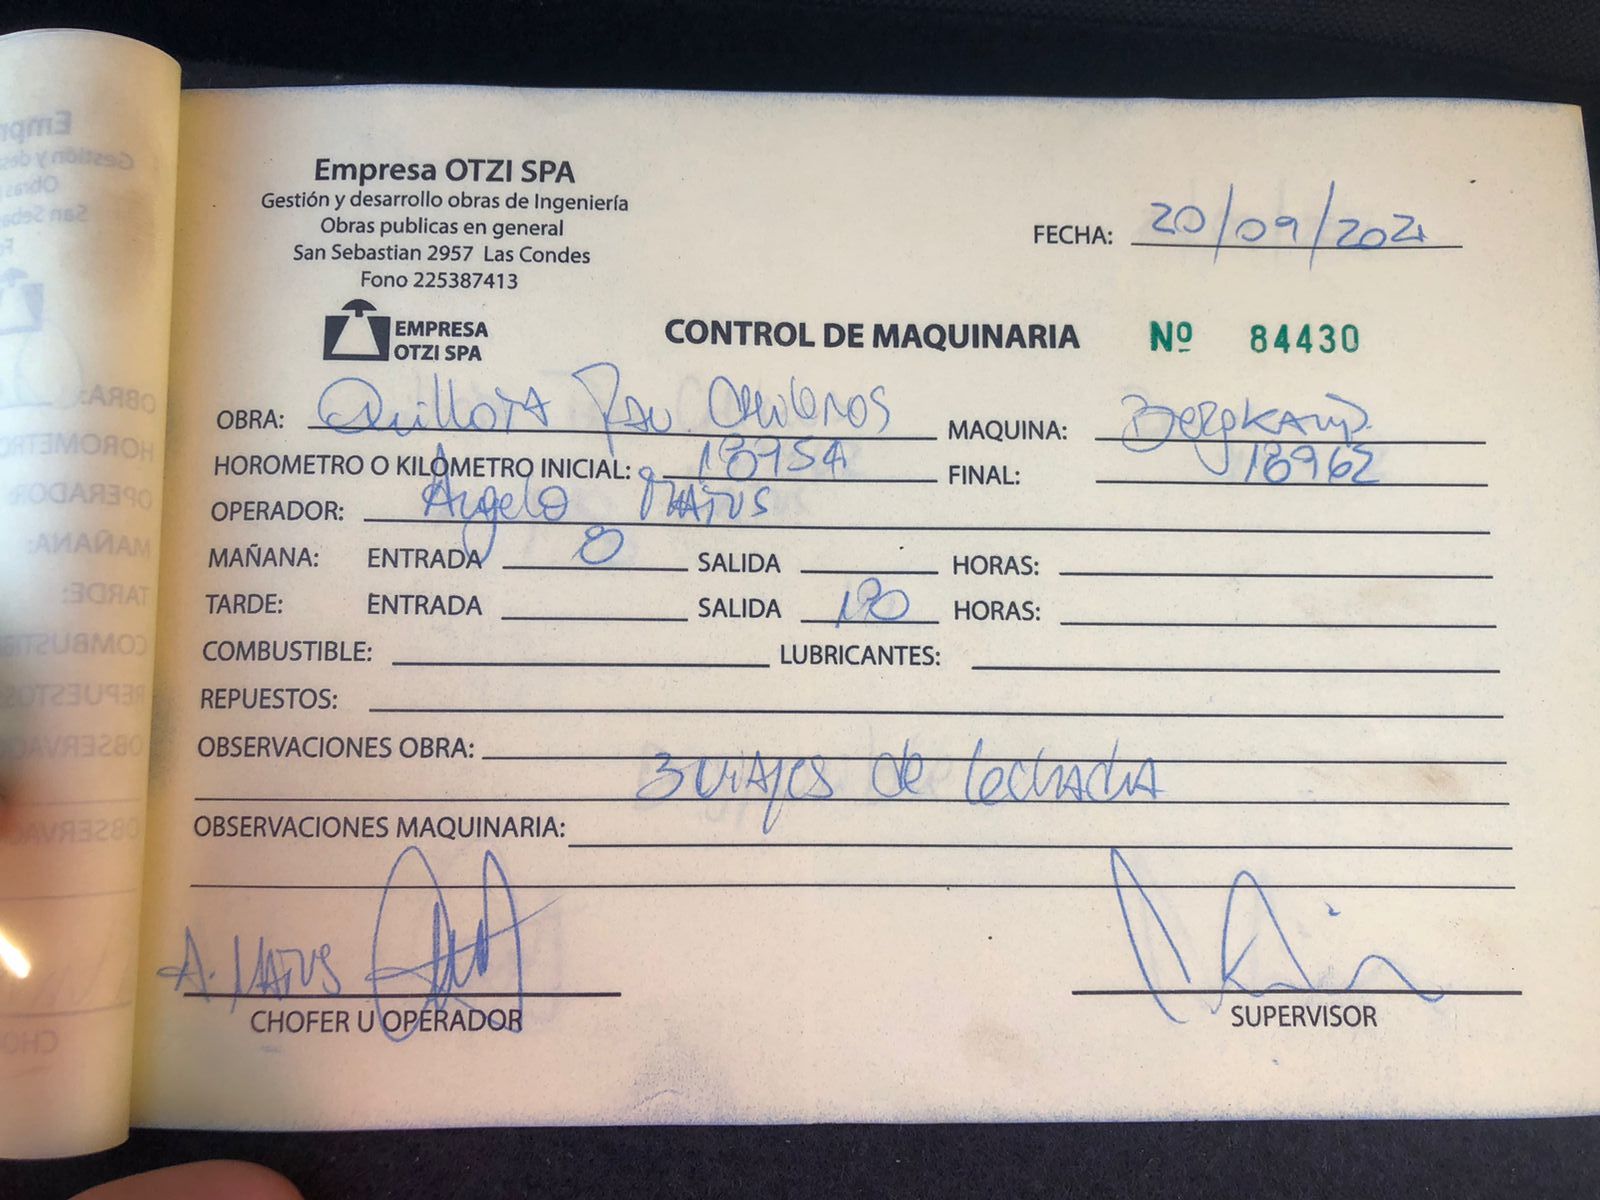 Empresa OTZI SPA
Gestión y desarrollo obras de Ingeniería
Obras publicas en general
San Sebastian 2957 Las Condes
Fono 225387413
FECHA: 20/09/2021
EMPRESA
OTZI SPA
CONTROL DE MAQUINARIA Nº 84430
OBRA: Quillota MAQUINA: Bergkamp
HOROMETRO O KILOMETRO INICIAL: FINAL: 18962
OPERADOR: Angelo Matus
MAÑANA: ENTRADA 8 SALIDA HORAS:
TARDE: ENTRADA SALIDA HORAS:
COMBUSTIBLE: LUBRICANTES:
REPUESTOS:
OBSERVACIONES OBRA:
3 viajes de lechada
OBSERVACIONES MAQUINARIA:
A. Matus
CHOFER U OPERADOR
SUPERVISOR